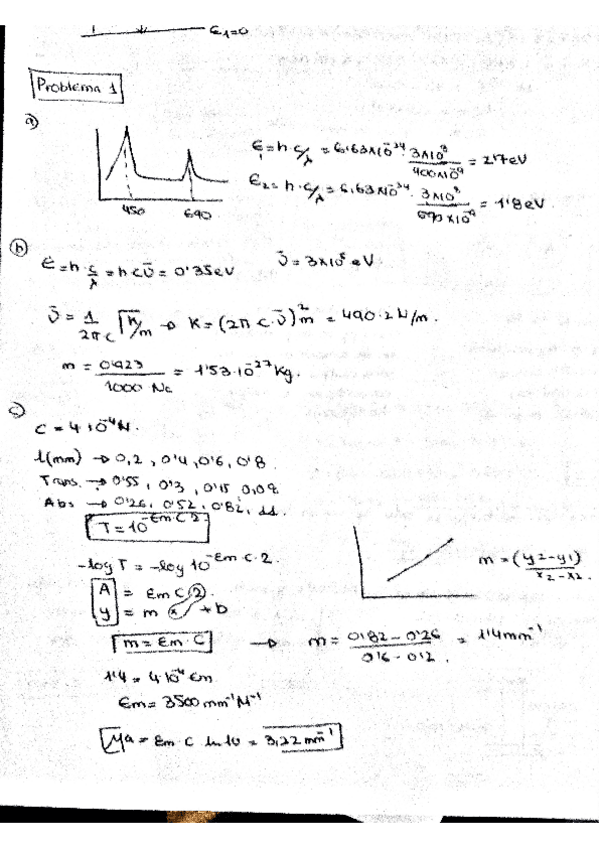 ε₁=0
Problema 1
a)
450 690
ε₁ = h·c/λ = 6,63×10⁻³⁴ · 3×10⁸/400×10⁻⁹ = 2'7 eV
ε₂ = h·c/λ = 6,63×10⁻³⁴ · 3×10⁸/690×10⁻⁹ = 1'8 eV.
b)
ε = h·c/λ = h c ν̄ = 0'35 eV ν̄ = 3×10⁵ eV
ν̄ = 1/2πc √k/m → K = (2π c·ν̄)² m = 490.2 N/m.
m = /1000 Na = 1'53·10⁻²⁷ Kg.
c)
C = 4·10⁻⁴ M.
l(mm) → 0,2, 0'4, 0'6, 0'8
Trans. → 0'55, 0'3, 0'15, 0,08
Abs → 0'26, 0'52, 0'82, 1'1.
T = 10^-Em·C·2
-log T = -log 10^-Em·C·2.
A = Em C 2.
y = m x + b
m = (y2-y1)/x2-x2.
m = Em·C → m = 0'82-0'26/0'6-0'2 = 1'4 mm⁻¹
1'4 = 4·10⁻⁴ Em
Em = 3500 mm⁻¹ M⁻¹
μa = Em·C ln10 = 3,22 mm⁻¹